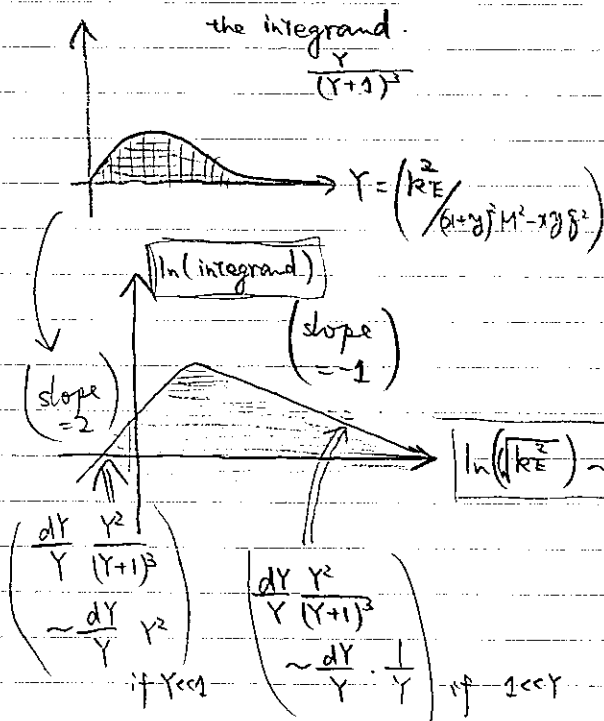 the integrand.
Y
(Y+1)³
Y = (k_E² / (x+y)²M² - xy q²)
ln(integrand)
(slope = 2)
(slope = -1)
ln(√k_E²) ~
(dY/Y Y²/(Y+1)³
~ dY/Y Y²)
if Y<<1
(dY/Y Y²/(Y+1)³
~ dY/Y · 1/Y)
if 1<<Y